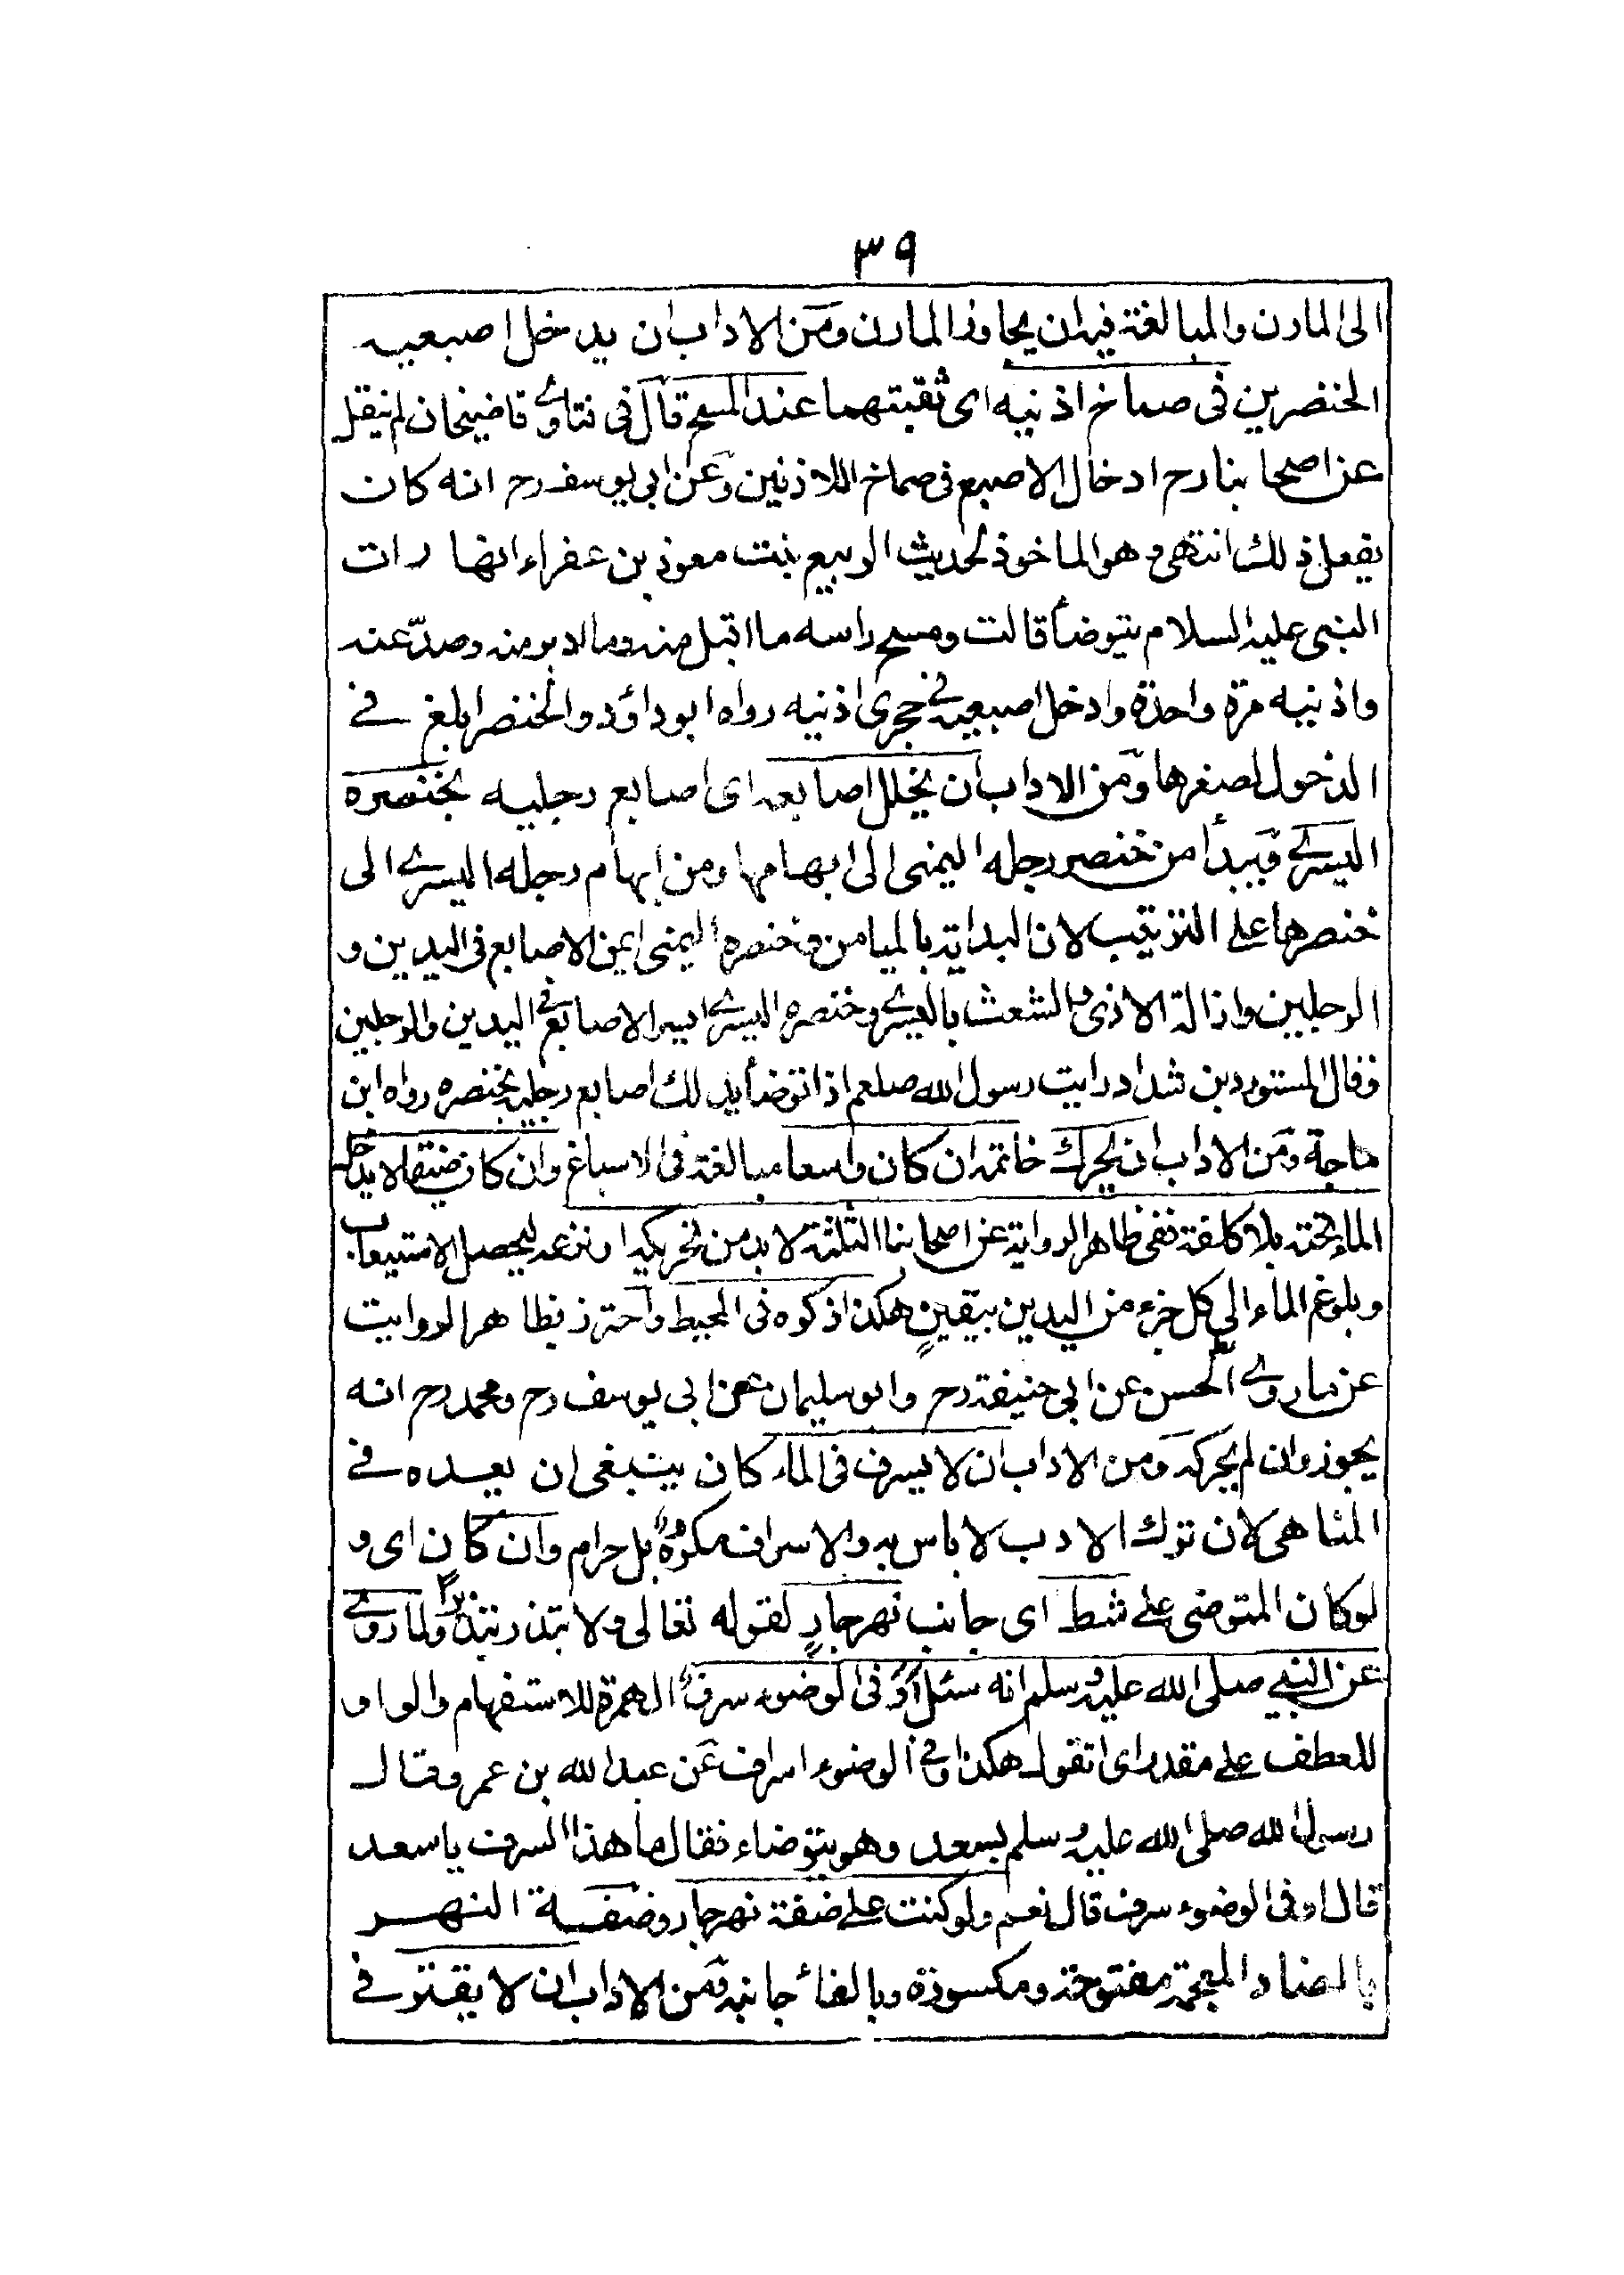 ٣٩
الى المارن والمبالغة فيه ان يجاوز المارن ومن الاداب ان يدخل اصبعيه
الخنصرين فى صماخ اذنيه اى ثقبتهما عند المسح قال فى فتاوى قاضيخان لم ينقل
عن اصحابنا رح ادخال الاصبع فى صماخ الاذنين وعن ابى يوسف رح انه كان
يفعل ذلك انتهى وهو الماخوذ لحديث الربيع بنت معوذ بن عفراء انها رات
النبى عليه السلام يتوضأ قالت ومسح راسه ما اقبل منه وما ادبر منه وصدغيه
واذنيه مرة واحدة وادخل اصبعيه فى حجرى اذنيه رواه ابوداؤد والخنصر ابلغ فے
الدخول لصغرها ومن الاداب ان يخلل اصابعه اى اصابع رجليه بخنصره
اليسرے فيبدأ من خنصر رجله اليمنى الى ابهامها ومن ابهام رجله اليسرے الى
خنصرها على الترتيب لان البداية بالميامن وخنصره اليمنى ايمن الاصابع فى اليدين و
الرجلين وازالة الاذى والشعث باليسرے وخنصره اليسرے ايسر الاصابع فى اليدين والرجلين
وقال المستورد بن شداد رايت رسول الله صلعم اذا توضأ يدلك اصابع رجليه بخنصره رواه ابن
ماجة ومن الاداب ان يحرك خاتمه ان كان واسعا مبالغة فى الاسباغ وان كان ضيقا لا يدخل
الماء تحته بلا كلفة ففى ظاهر الرواية عن اصحابنا الثلثة لا بد من تحريكه او نزعه ليحصل الاستيعاب
وبلوغ الماء الى كل جزء من اليدين بيقين هكذا ذكره فى المحيط واحترز بظاهر الروايت
عن ما روے الحسن عن ابى حنيفة رح وابو سليمان عن ابى يوسف رح ومحمد رح انه
يجوز وان لم يحركه ومن الاداب ان لا يسرف فى الماء كان ينبغى ان يعده فے
المناهى لان ترك الادب لا باس به والاسراف مكروه بل حرام وان كان اى و
لو كان المتوضى على شط اى جانب نهر جار لقوله تعالى ولا تبذر تبذيرا ولما روے
عن النبى صلى الله عليه وسلم انه سئل أوَ فى الوضوء سرف الهمزة للاستفهام والواو
للعطف على مقدر اى اتقول هكذا وفى الوضوء اسراف عن عبد الله بن عمر وقال
رسول الله صلى الله عليه وسلم بسعد وهو يتوضاء فقال ما هذا السرف يا سعد
قال او فى الوضوء سرف قال نعم ولو كنت على ضفة نهر جار وضفة النهر
بالضاد المعجمة مفتوحة ومكسورة وبالفاء جانبه ومن الاداب ان لا يقتر فے